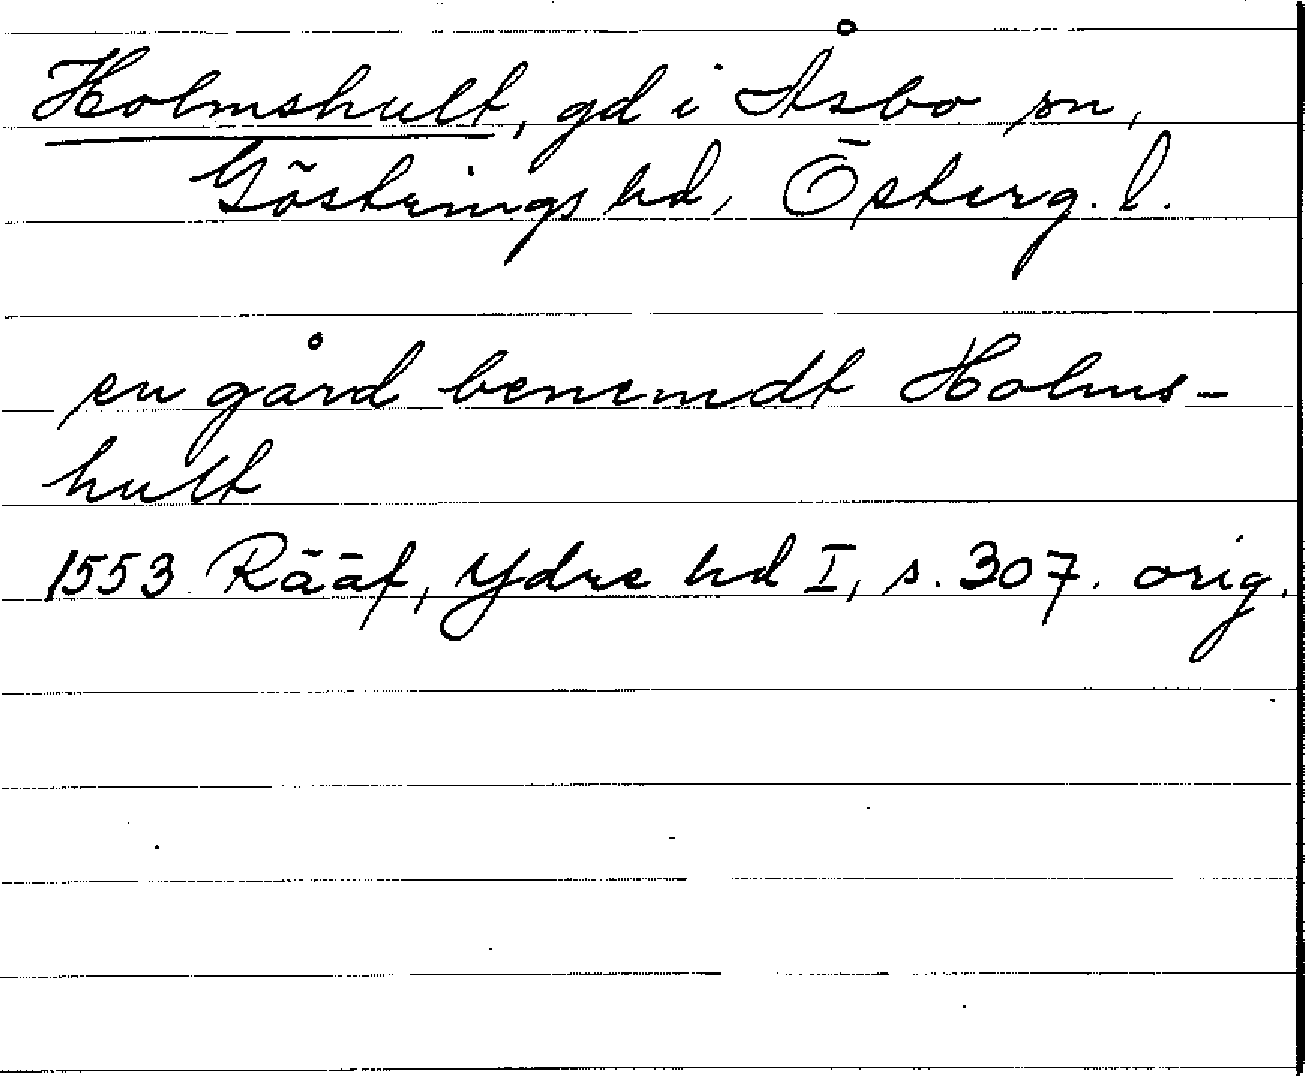 Holmshult, gd i Åsbo sn,
Göstrings hd, Österg. l.
en gård benemdt Holms-
hult
1553 Rääf, Ydre hd I, s. 307. orig.